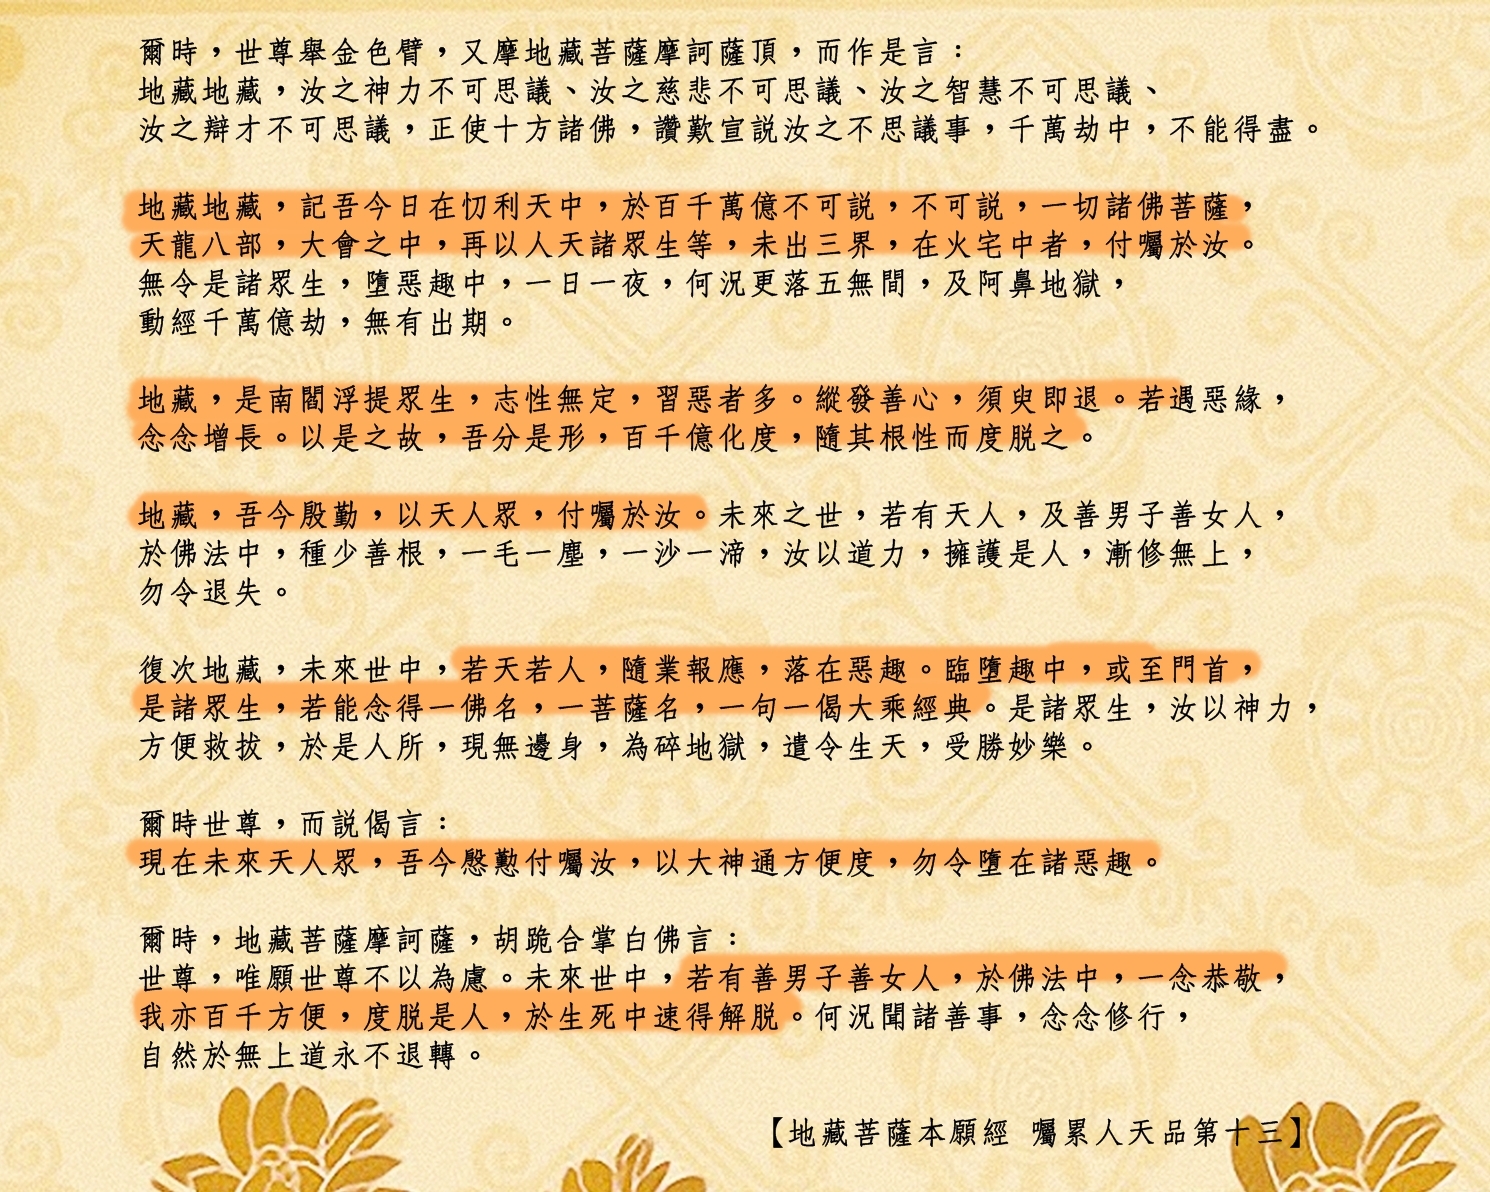 爾時，世尊舉金色臂，又摩地藏菩薩摩訶薩頂，而作是言：
地藏地藏，汝之神力不可思議、汝之慈悲不可思議、汝之智慧不可思議、
汝之辯才不可思議，正使十方諸佛，讚歎宣説汝之不思議事，千萬劫中，不能得盡。
地藏地藏，記吾今日在忉利天中，於百千萬億不可説，不可説，一切諸佛菩薩，
天龍八部，大會之中，再以人天諸眾生等，未出三界，在火宅中者，付囑於汝。
無令是諸眾生，墮惡趣中，一日一夜，何況更落五無間，及阿鼻地獄，
動經千萬億劫，無有出期。
地藏，是南閻浮提眾生，志性無定，習惡者多。縱發善心，須臾即退。若遇惡緣，
念念增長。以是之故，吾分是形，百千億化度，隨其根性而度脱之。
地藏，吾今殷勤，以天人眾，付囑於汝。未來之世，若有天人，及善男子善女人，
於佛法中，種少善根，一毛一塵，一沙一渧，汝以道力，擁護是人，漸修無上，
勿令退失。
復次地藏，未來世中，若天若人，隨業報應，落在惡趣。臨墮趣中，或至門首，
是諸眾生，若能念得一佛名，一菩薩名，一句一偈大乘經典。是諸眾生，汝以神力，
方便救拔，於是人所，現無邊身，為碎地獄，遣令生天，受勝妙樂。
爾時世尊，而説偈言：
現在未來天人眾，吾今慇懃付囑汝，以大神通方便度，勿令墮在諸惡趣。
爾時，地藏菩薩摩訶薩，胡跪合掌白佛言：
世尊，唯願世尊不以為慮。未來世中，若有善男子善女人，於佛法中，一念恭敬，
我亦百千方便，度脱是人，於生死中速得解脱。何況聞諸善事，念念修行，
自然於無上道永不退轉。
【地藏菩薩本願經 囑累人天品第十三】